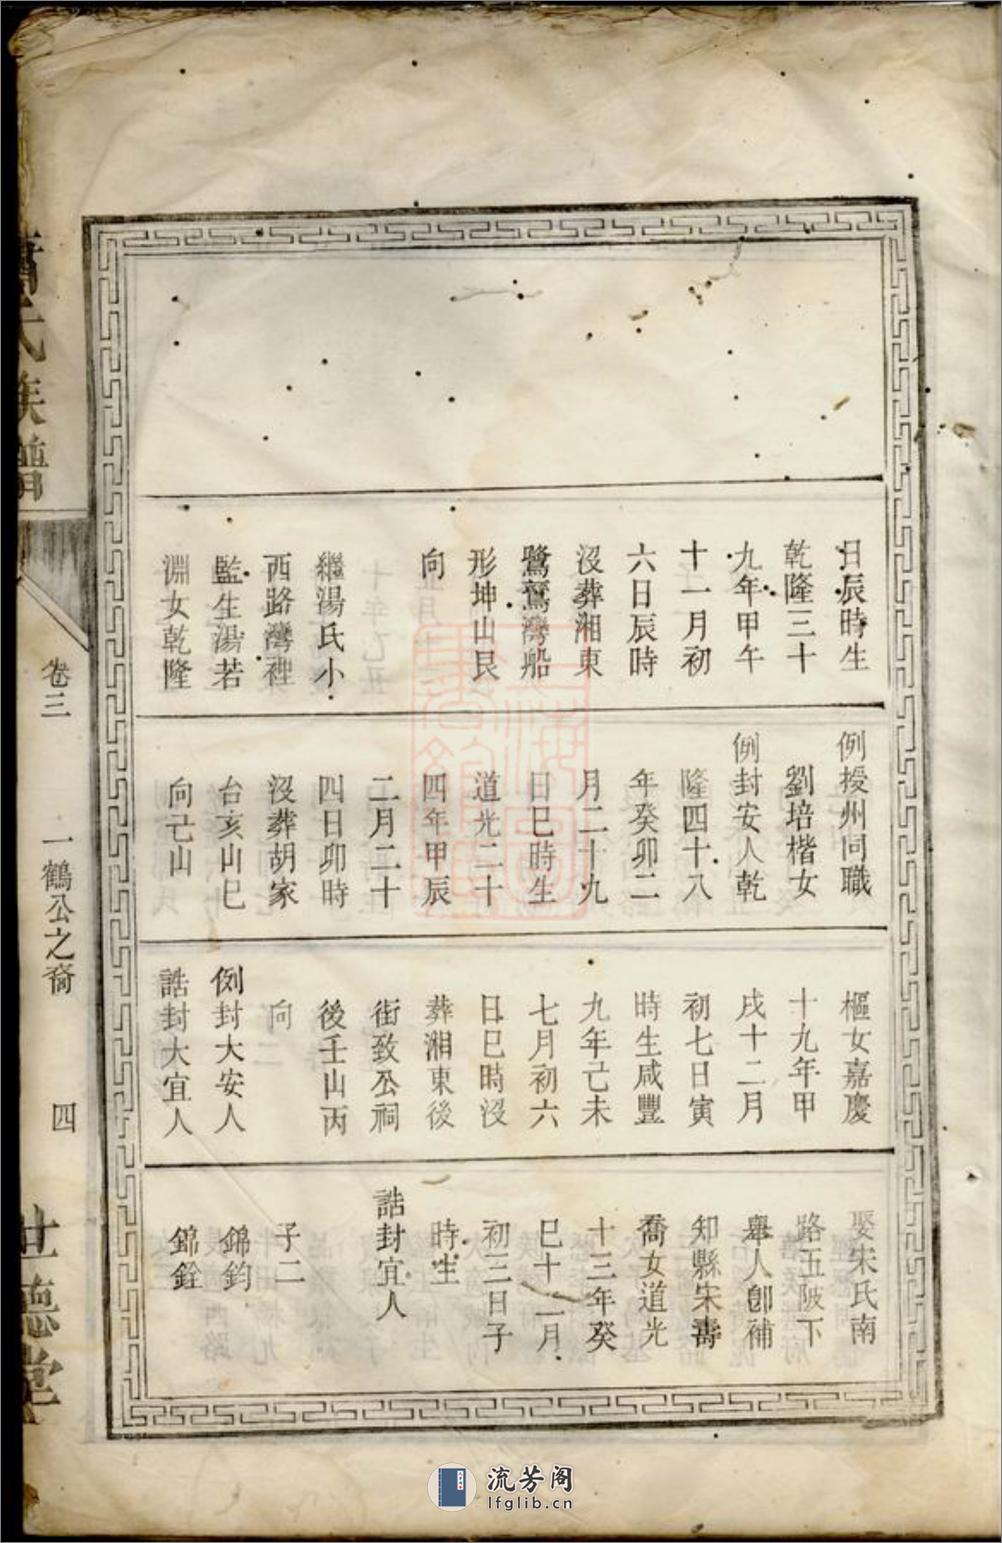 日辰時生
乾隆三十
九年甲午
十一月初
六日辰時
沒葬湘東
鷺鷥灣船
形坤山艮
向
繼湯氏小
西路灣裡
監生湯若
淵女乾隆
例授州同職
劉培楷女
例封安人乾
隆四十八
年癸卯二
月二十九
日巳時生
道光二十
四年甲辰
二月二十
四日卯時
沒葬胡家
台亥山巳
向
樞女嘉慶
十九年甲
戌十二月
初七日寅
時生咸豐
九年己未
七月初六
日巳時沒
葬湘東後
街致公祠
後壬山丙
向
例封大安人
誥封大宜人
娶宋氏南
路五陂下
舉人卽補
知縣宋壽
喬女道光
十三年癸
巳十一月
初三日子
時生
誥封宜人
子二
錦鈞
錦銓
氏族譜
卷三
一鶴公之裔
四
世德堂
流芳阁
lfglib.cn